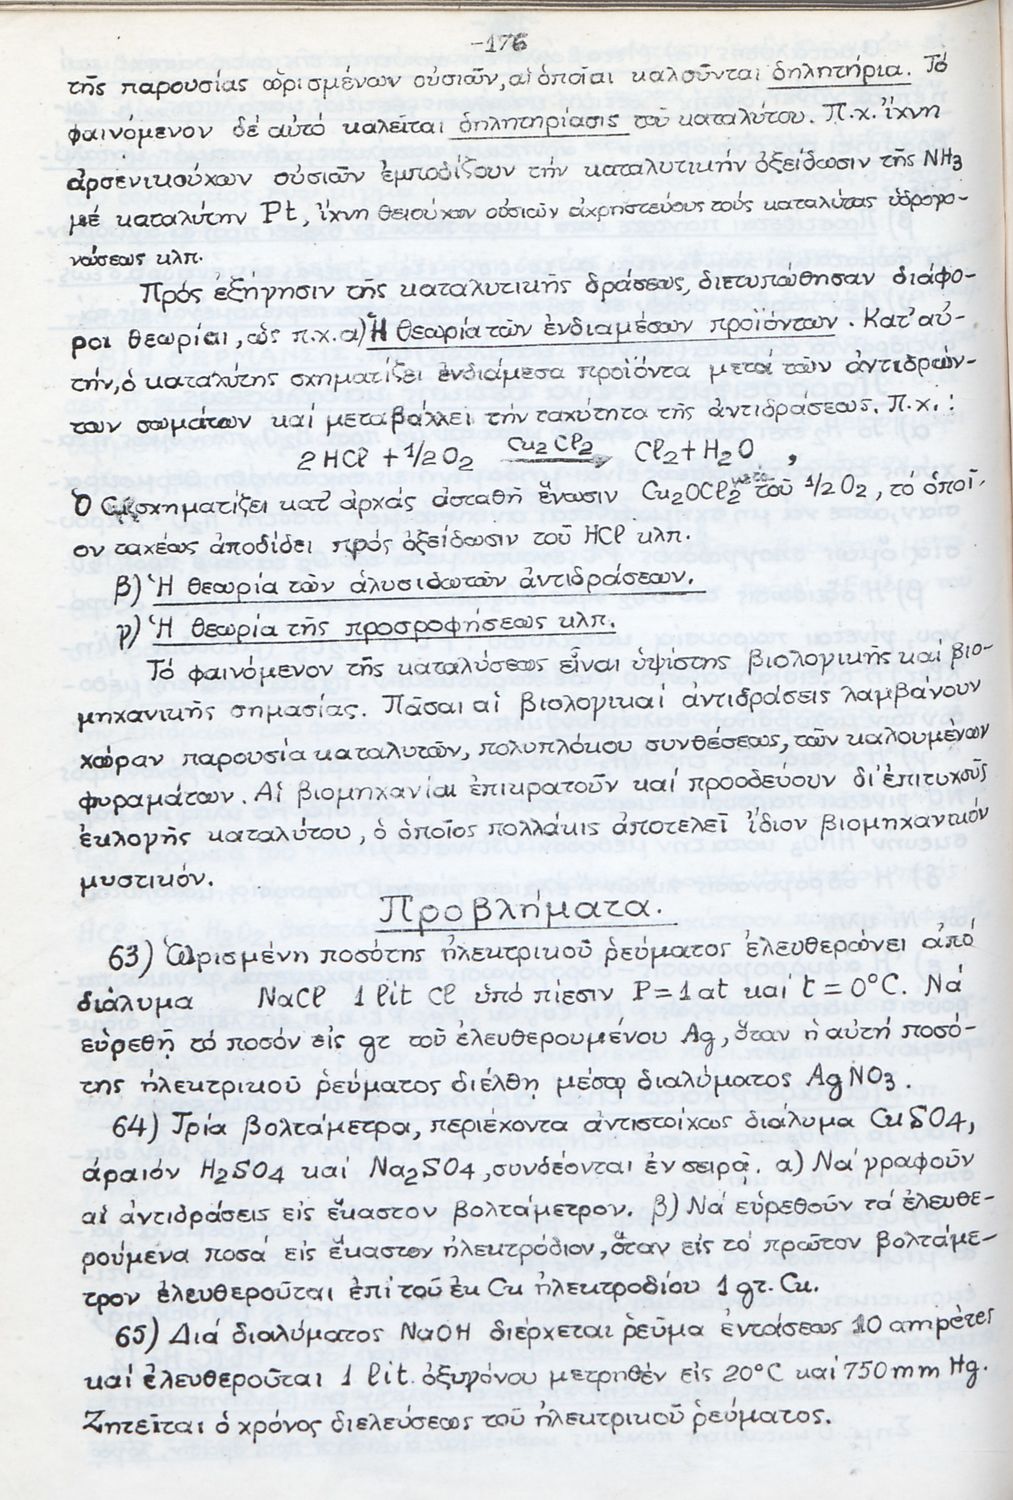 -176
τῆς παρουσίας ὡρισμένων οὐσιῶν, αἱ ὁποῖαι καλοῦνται δηλητήρια. Τό
φαινόμενον δέ αὐτό καλεῖται δηλητηρίασις τοῦ καταλύτου. Π.χ. ἴχνη
ἀρσενικούχων οὐσιῶν ἐμποδίζουν τήν καταλυτικήν ὀξείδωσιν τῆς NH3
μέ καταλύτην Pt, ἴχνη θειούχων οὐσιῶν ἀχρηστεύους τούς καταλύτας ὑδρογο-
νώσεως κλπ.
Πρός ἐξήγησιν τῆς καταλυτικῆς δράσεως, διετυπώθησαν διάφο-
ροι θεωρίαι, ὡς π.χ. α) Ἡ θεωρία τῶν ἐνδιαμέσων προϊόντων. Κατ' αὐ-
τήν, ὁ καταλύτης σχηματίζει ἐνδιάμεσα προϊόντα μετά τῶν ἀντιδρών-
των σωμάτων καί μεταβάλλει τήν ταχύτητα τῆς ἀντιδράσεως. Π.χ. :
2 HCl + 1/2 O2 Cu2 Cl2 Cl2 + H2O ,
Ὁ σχηματίζει κατ' ἀρχάς ἀσταθῆ ἕνωσιν Cu2OCl2 μετά τοῦ 1/2 O2, τό ὁποῖ-
ον ταχέως ἀποδίδει πρός ὀξείδωσιν τοῦ HCl κλπ.
β) Ἡ θεωρία τῶν ἁλυσιδωτῶν ἀντιδράσεων.
γ) Ἡ θεωρία τῆς προσροφήσεως κλπ.
Τό φαινόμενον τῆς καταλύσεως εἶναι ὑψίστης βιολογικῆς καί βιο-
μηχανικῆς σημασίας. Πᾶσαι αἱ βιολογικαί ἀντιδράσεις λαμβάνουν
χώραν παρουσία καταλυτῶν, πολυπλόκου συνθέσεως, τῶν καλουμένων
φυραμάτων. Αἱ βιομηχανίαι ἐπικρατοῦν καί προοδεύουν δι' ἐπιτυχοῦς
ἐκλογῆς καταλύτου, ὁ ὁποῖος πολλάκις ἀποτελεῖ ἴδιον βιομηχανικόν
μυστικόν.
Προβλήματα.
63) Ὡρισμένη ποσότης ἠλεκτρικοῦ ῥεύματος ἐλευθερώνει ἀπό
διάλυμα NaCl 1 lit Cl ὑπό πίεσιν P = 1 at καί t = 0°C. Νά
εὑρεθῇ τό ποσόν εἰς gr τοῦ ἐλευθερουμένου Ag, ὅταν ἡ αὐτή ποσό-
της ἠλεκτρικοῦ ῥεύματος διέλθῃ μέσῳ διαλύματος AgNO3.
64) Τρία βολτάμετρα, περιέχοντα ἀντιστοίχως διάλυμα CuSO4,
ἀραιόν H2SO4 καί Na2SO4, συνδέονται ἐν σειρᾷ. α) Νά γραφοῦν
αἱ ἀντιδράσεις εἰς ἕκαστον βολτάμετρον. β) Νά εὑρεθοῦν τά ἐλευθε-
ρούμενα ποσά εἰς ἕκαστον ἠλεκτρόδιον, ὅταν εἰς τό πρῶτον βολτάμε-
τρον ἐλευθεροῦται ἐπί τοῦ ἐκ Cu ἠλεκτροδίου 1 gr. Cu.
65) Διά διαλύματος NaOH διέρχεται ῥεῦμα ἐντάσεως 10 ampères
καί ἐλευθεροῦται 1 lit. ὀξυγόνου μετρηθέν εἰς 20°C καί 750 mm Hg.
Ζητεῖται ὁ χρόνος διελεύσεως τοῦ ἠλεκτρικοῦ ῥεύματος.